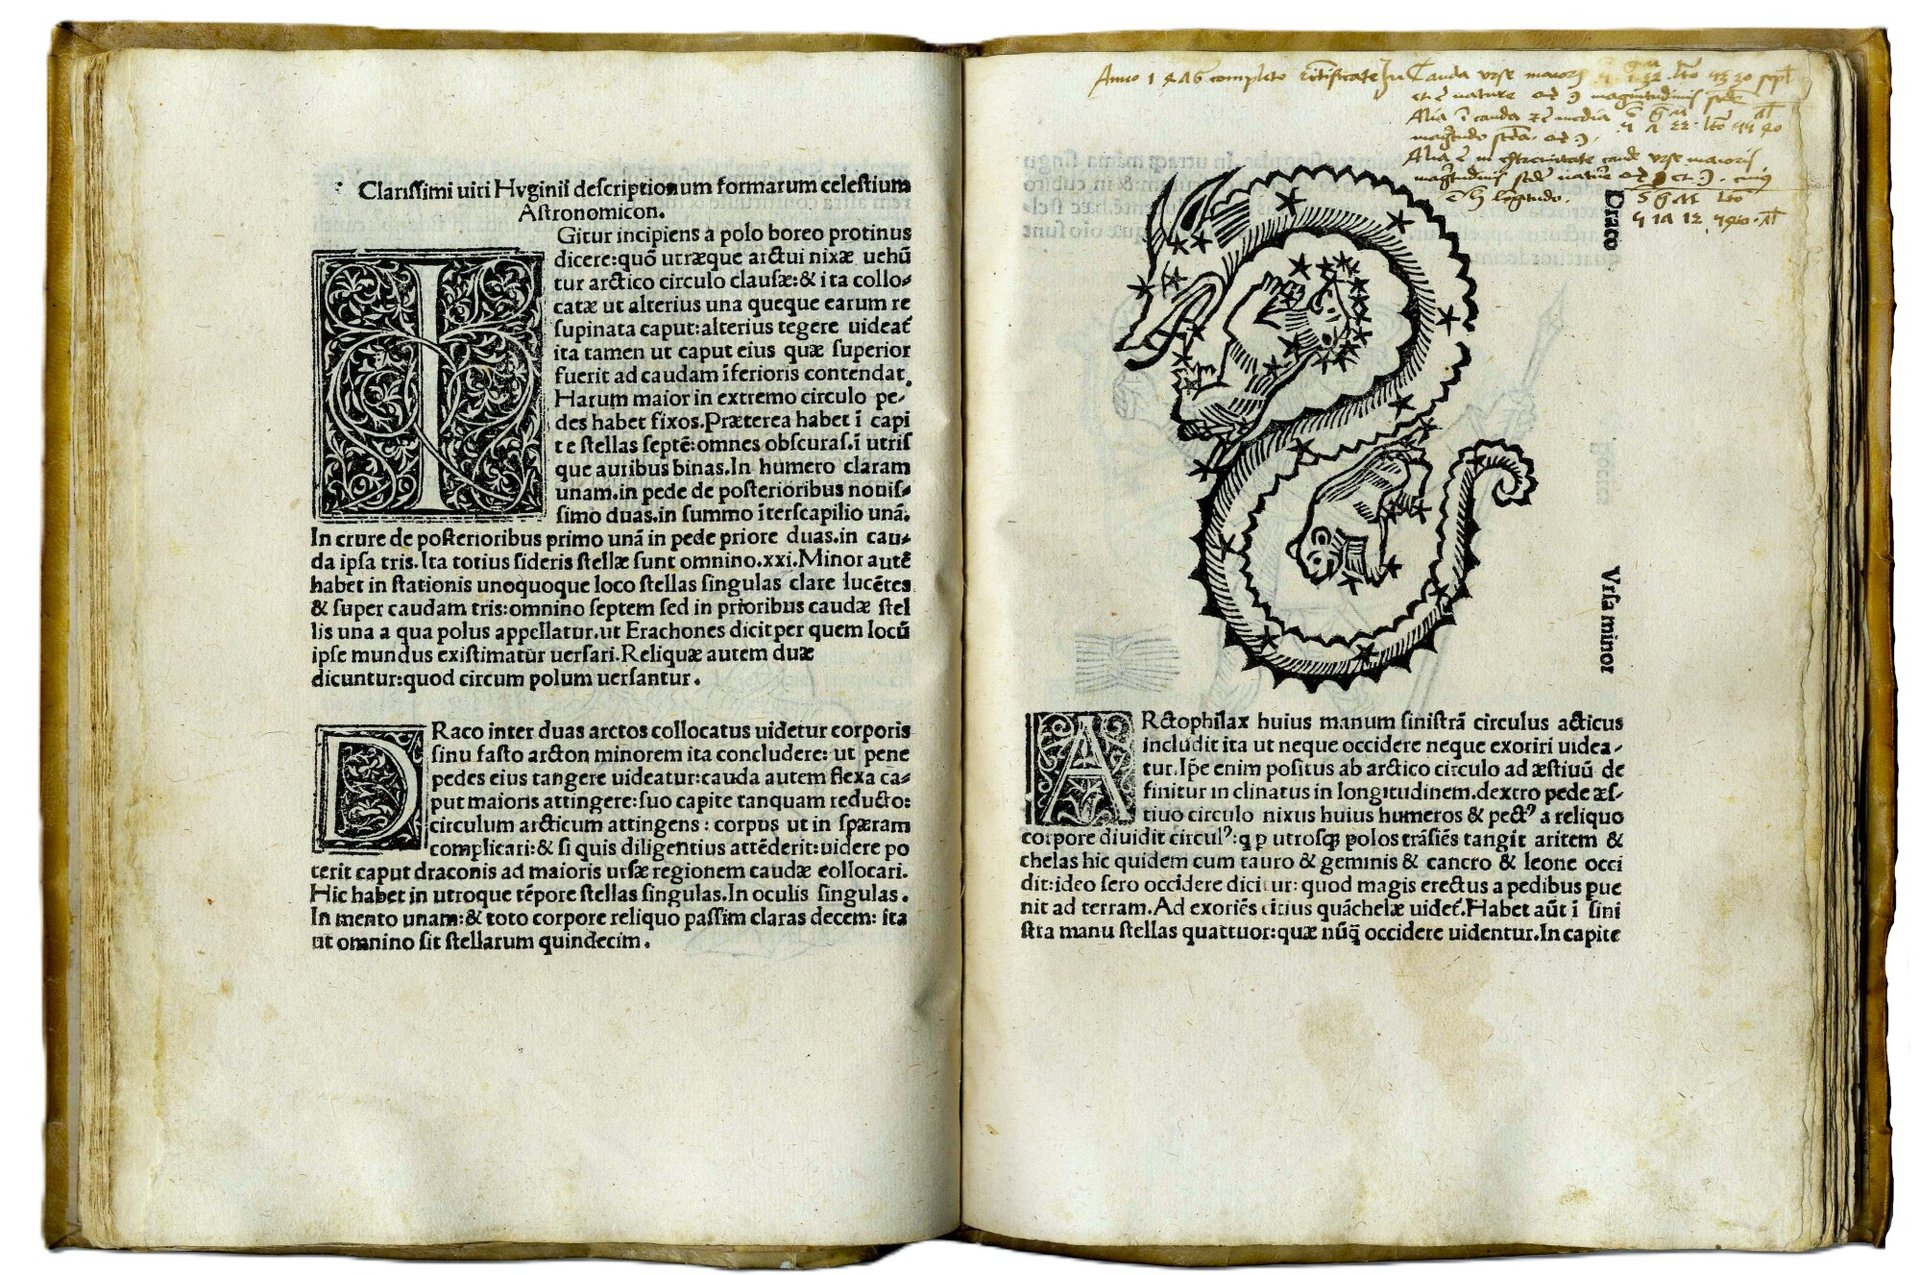 Clarissimi uiri Hyginii descriptionum formarum celestium
Astronomicon.
IGitur incipiens a polo boreo protinus
dicere:quō utræque arctui nixæ uehū
tur arctico circulo clausæ:& ita collo-
catæ ut alterius una queque earum re
supinata caput:alterius tegere uideat̄
ita tamen ut caput eius quæ superior
fuerit ad caudam īferioris contendat.
Harum maior in extremo circulo pe-
des habet fixos.Præterea habet ī capi
te stellas septē:omnes obscuras.ī utris
que auribus binas.In humero claram
unam.in pede de posterioribus nouis-
simo duas.in summo īterscapilio unā.
In crure de posterioribus primo unā in pede priore duas.in cau-
da ipsa tris.Ita totius sideris stellæ sunt omnino.xxi.Minor autē
habet in stationis unoquoque loco stellas singulas clare lucētes
& super caudam tris:omnino septem sed in prioribus caudæ stel
lis una a qua polus appellatur.ut Erachones dicit per quem locū
ipse mundus existimatur uersari.Reliquæ autem duæ
dicuntur:quod circum polum uersantur.
DRaco inter duas arctos collocatus uidetur corporis
sinu fasto arcton minorem ita concludere: ut pene
pedes eius tangere uideatur:cauda autem flexa ca-
put maioris attingere:suo capite tanquam reducto:
circulum arcticum attingens: corpus ut in spæram
complicari:& si quis diligentius attēderit:uidere po
terit caput draconis ad maioris ursæ regionem caudæ collocari.
Hic habet in utroque tēpore stellas singulas.In oculis singulas.
In mento unam:& toto corpore reliquo passim claras decem: ita
ut omnino sit stellarum quindecim.
Anno completo Cauda urse maioris
nature magnitudinis
Alia ī cauda media
Alia in extremitate caude urse maioris
magnitudinis
Draco
Vrsa minor
ARctophilax huius manum sinistrā circulus acticus
includit ita ut neque occidere neque exoriri uidea-
tur.Ip̄e enim positus ab arctico circulo ad æstiuū de
finitur in clinatus in longitudinem.dextro pede æs-
tiuo circulo nixus huius humeros & pectꝰ a reliquo
corpore diuidit circulꝰ:q p utrosqꝫ polos trāsiēs tangit aritem &
chelas hic quidem cum tauro & geminis & cancro & leone occi
dit:ideo sero occidere dicitur: quod magis erectus a pedibus pue
nit ad terram.Ad exoriēs citius quāchelæ uidet̄.Habet aūt ī sini
stra manu stellas quattuor:quæ nūq̄ occidere uidentur.In capite